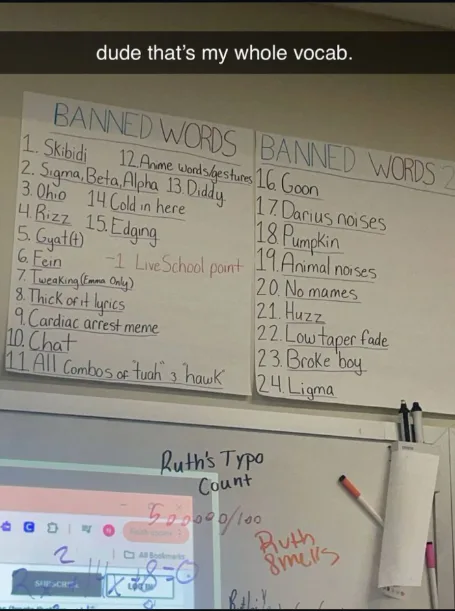 dude that's my whole vocab.
BANNED WORDS
1. Skibidi
2. Sigma, Beta, Alpha
3. Ohio
4. Rizz
5. Gyat(t)
6. Fein
7. Tweaking (Emma Only)
8. Thick of it lyrics
9. Cardiac arrest meme
10. Chat
11 All combos of "tuah" & "hawk"
12. Anime words/gestures
13. Diddy
14 Cold in here
15. Edging
-1 LiveSchool point
BANNED WORDS 2
16. Goon
17. Darius noises
18. Pumpkin
19. Animal noises
20. No mames
21. Huzz
22. Low taper fade
23. Broke boy
24. Ligma
Ruth's Typo
Count
500000/100
Ruth
Smells
All Bookmarks
SUBSCRIBE
LOG IN